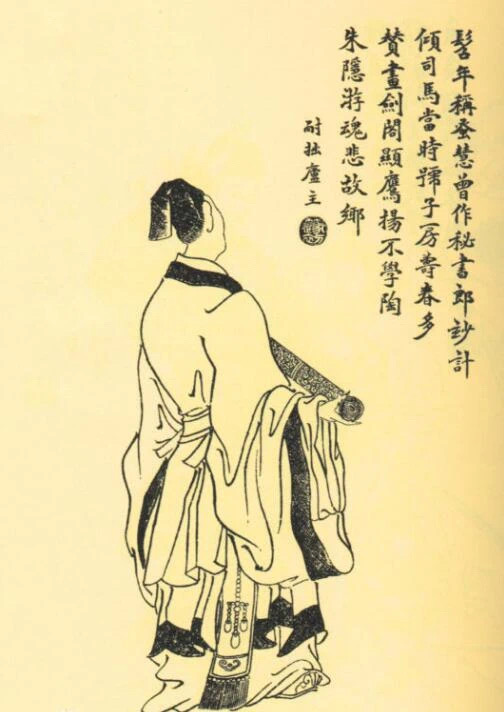 髫年稱蚤慧曾作秘書郎妙計
傾司馬當時號子房壽春多
贊畫劍閣顯鷹揚不學陶
朱隱游魂悲故鄉
耐拙廬主